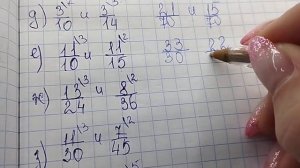 д) 3\2/10 и 3/14 21/10 и 15/10
е) 11\3/10 и 11\2/15 33/30 22
ж) 13\3/24 и 8\2/36
з) 11\3/30 и 7\2/45